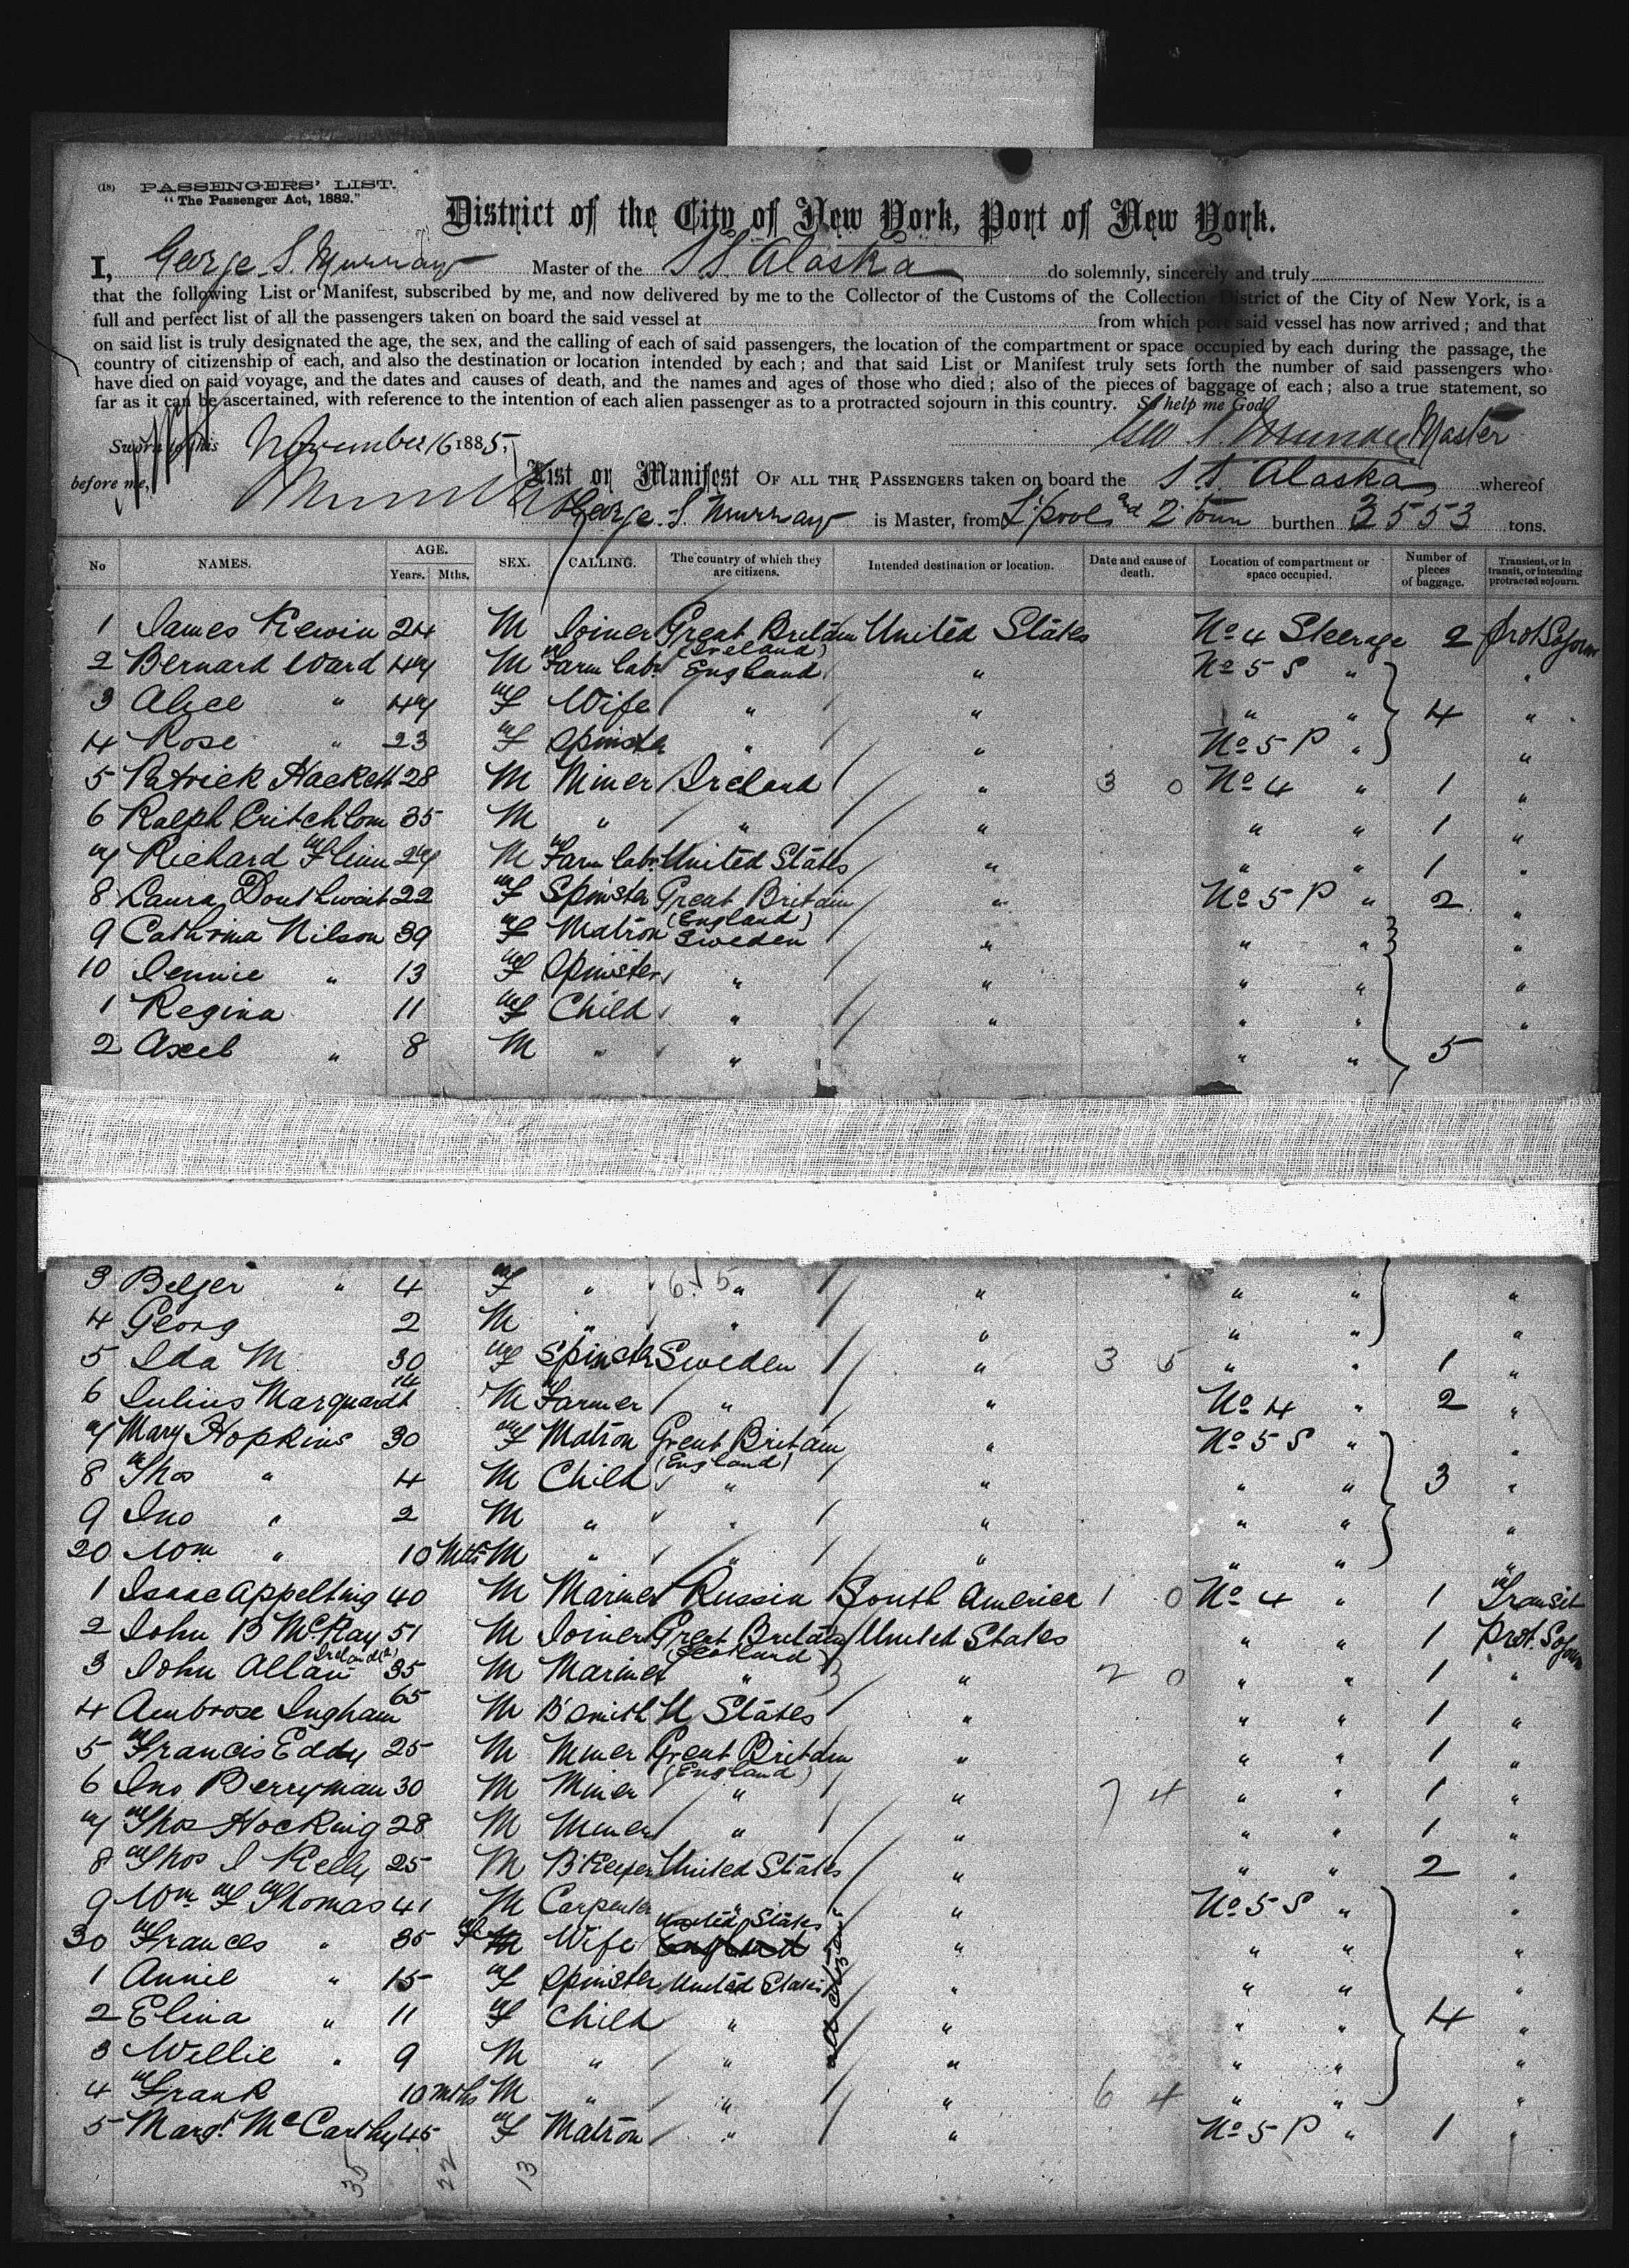 (18) PASSENGERS' LIST.
"The Passenger Act, 1882."
District of the City of New York, Port of New York.
I, George S. Murray Master of the S S. Alaska do solemnly, sincerely and truly
that the following List or Manifest, subscribed by me, and now delivered by me to the Collector of the Customs of the Collection District of the City of New York, is a
full and perfect list of all the passengers taken on board the said vessel at from which port said vessel has now arrived; and that
on said list is truly designated the age, the sex, and the calling of each of said passengers, the location of the compartment or space occupied by each during the passage, the
country of citizenship of each, and also the destination or location intended by each; and that said List or Manifest truly sets forth the number of said passengers who
have died on said voyage, and the dates and causes of death, and the names and ages of those who died; also of the pieces of baggage of each; also a true statement, so
far as it can be ascertained, with reference to the intention of each alien passenger as to a protracted sojourn in this country. So help me God.
Sworn to this November 16 1885, Geo S. Murray Master
before me,
List or Manifest OF ALL THE PASSENGERS taken on board the S S. Alaska whereof
George. S Murray is Master, from L'pool and Q'Town burthen 3553 tons.
No NAMES. AGE. Years. Mths. SEX. CALLING. The country of which they are citizens. Intended destination or location. Date and cause of death. Location of compartment or space occupied. Number of pieces of baggage. Transient, or in transit, or intending protracted sojourn.
1 James Kewin 24 M Joiner Great Britain (Ireland) United States No 4 Steerage 2 Prot Sojourn
2 Bernard Ward 47 M Farm labr England " No 5 S " "
3 Alice " 47 F Wife " " " " 4 "
4 Rose " 23 F Spinster " " No 5 P " "
5 Patrick Hackett 28 M Miner Ireland " 3 0 No 4 " 1 "
6 Ralph Critchlow 35 M " " " " " 1 "
7 Richard Flinn 27 M Farm labr United States " " " 1 "
8 Laura Douthwait 22 F Spinster Great Britain (England) " No 5 P " 2 "
9 Cathrina Nilson 39 F Matron Sweden " " " "
10 Jennie " 13 F Spinster " " " " "
1 Regina 11 F Child " " " " "
2 Axel " 8 M " " " " 5
3 Belger " 4 F " 6.15 " " " " "
4 Georg 2 M " " " " " "
5 Ida M 30 F Spinster Sweden " 3 5 " " 1 "
6 Julius Marquardt 14 M Farmer " " No 4 " 2 "
7 Mary Hopkins 30 F Matron Great Britain (England) " No 5 S " "
8 Thos " 4 M Child " " " " 3 "
9 Jno " 2 M " " " " " "
20 Wm " 10 Mths M " " " " " "
1 Isaac Appelting 40 M Mariner Russia South America 1 0 No 4 " 1 Transit
2 John B McKay 51 M Joiner Great Britain (Scotland) United States " " 1 Prot. Sojourn
3 John Allan 35 M Mariner " " 2 0 " " 1 "
4 Ambrose Ingham 65 M B'smith U States " " " 1 "
5 Francis Eddy 25 M Miner Great Britain (England) " " " 1 "
6 Jno Berryman 30 M Miner " " 7 4 " " 1 "
7 Thos Hocking 28 M Miner " " " " 1 "
8 Thos J Kelly 25 M B'Keeper United States " " " 2 "
9 Wm F Thomas 41 M Carpenter " " No 5 S " "
30 Frances " 35 F Wife United States England " " " "
1 Annie " 15 F Spinster United States " " " "
2 Elina " 11 F Child " " " " 4 "
3 Willie " 9 M " " " " " "
4 Frank 10 mths M " " " 6 4 " " "
5 Margt McCarthy 45 F Matron " " No 5 P " 1 "
35 22 13